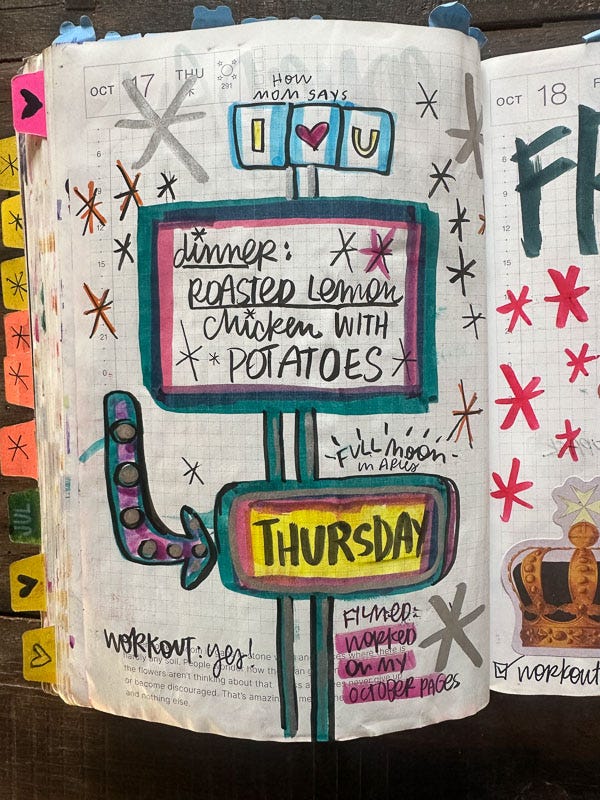 OCT 17 THU
291
HOW
MOM SAYS
I ♥ U
6
9
12
15
21
0
dinner:
ROASTED Lemon
chicken WITH
POTATOES
FULL MOON
IN ARIES
THURSDAY
JUL
WORKOUT: yes!
FILMED:
WORKED
ON MY
OCTOBER PAGES
stone where there is
any soil. People how can
the flowers aren't thinking about that. never give up
or become discouraged. That's
and nothing else.
OCT 18 F
F
workout